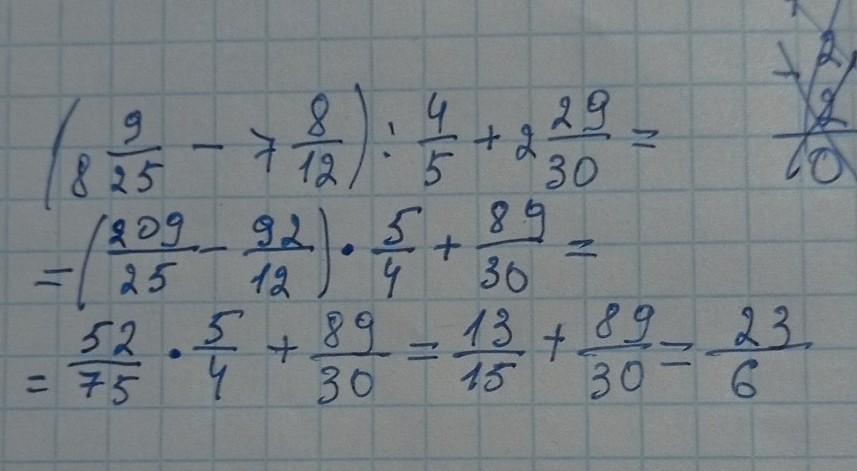 (8 9/25 - 7 8/12) : 4/5 + 2 29/30 =
= (209/25 - 92/12) • 5/4 + 89/30 =
= 52/75 • 5/4 + 89/30 = 13/15 + 89/30 = 23/6